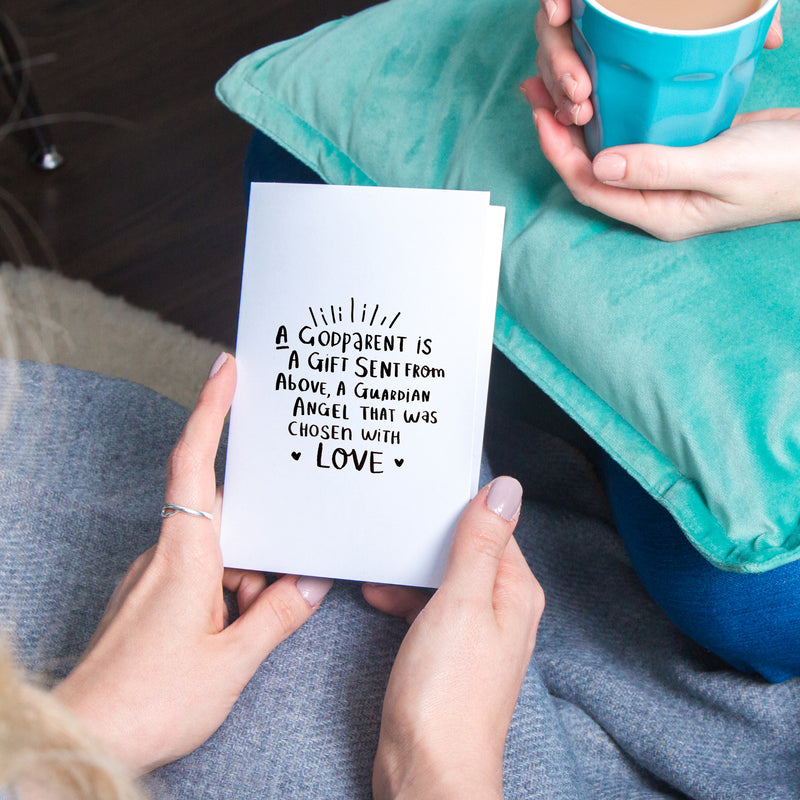 A GODPARENT IS
A GIFT SENT FROM
ABOVE, A GUARDIAN
ANGEL THAT WAS
CHOSEN WITH
LOVE